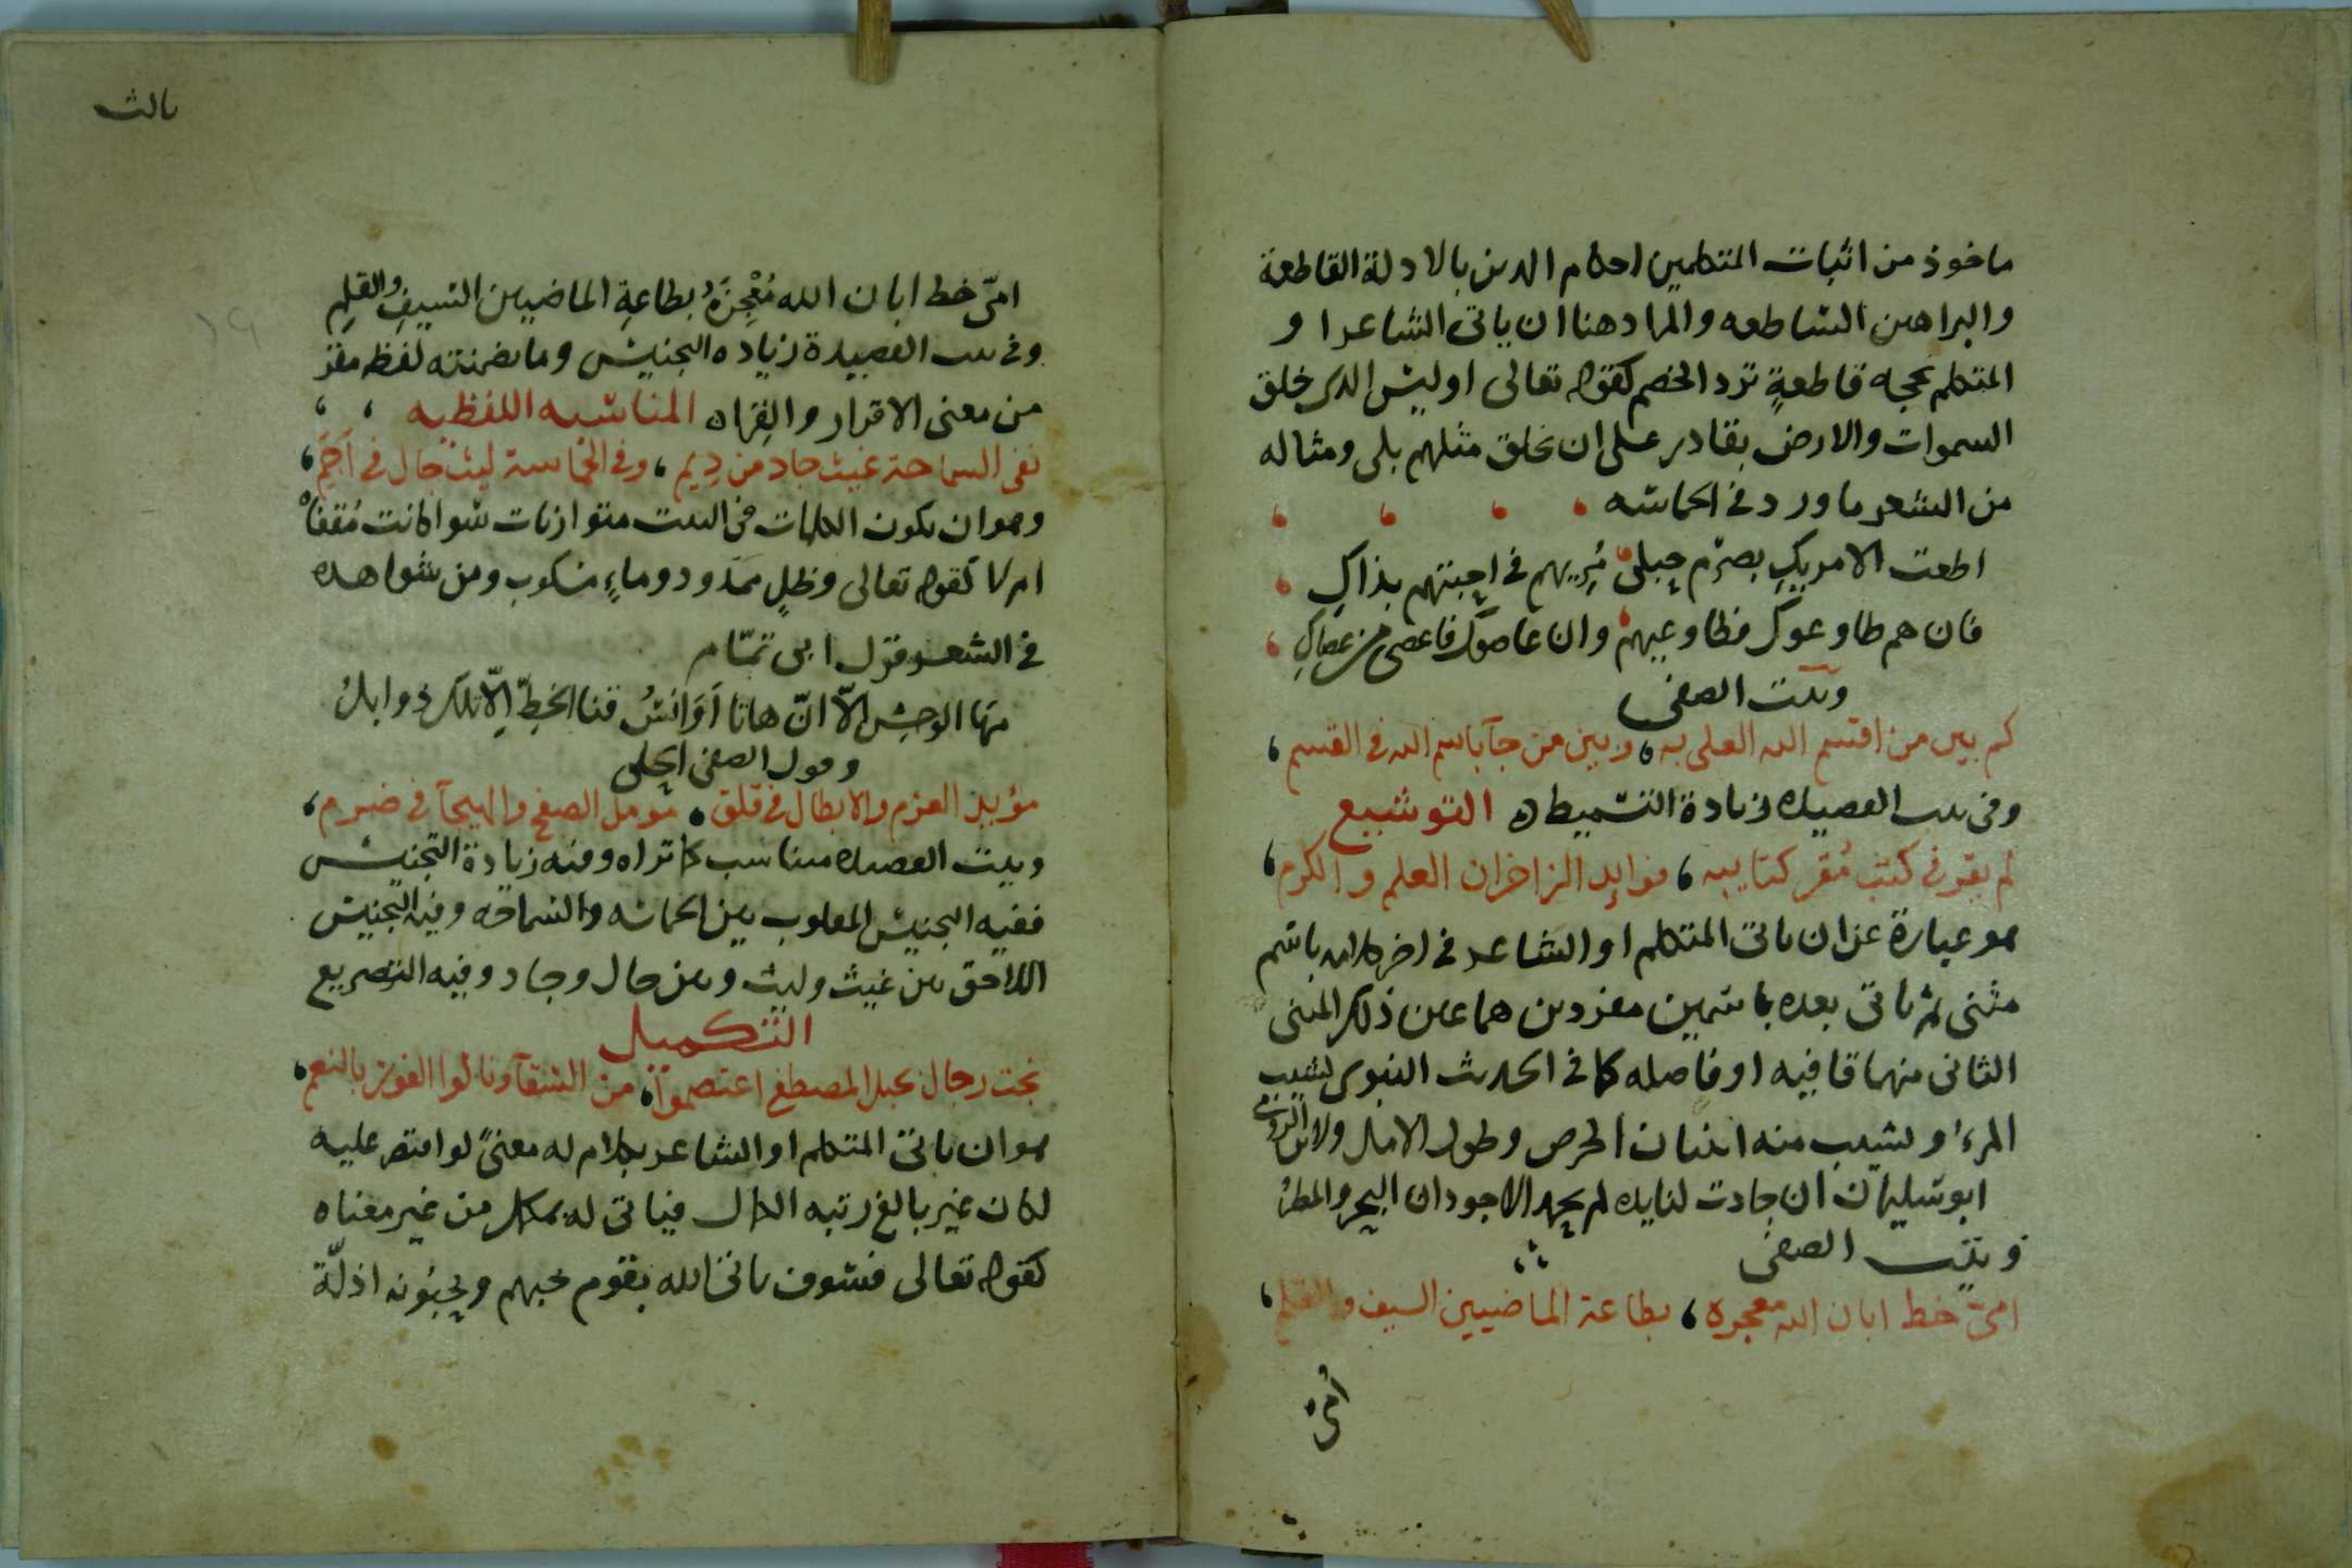 ماخوذ من اثبات المتكلمين احكام الدين بالادلة القاطعة
والبراهين الساطعه والمراد هنا ان ياتى الشاعر او
المتكلم بحجه قاطعةٍ ترد الخصم كقوله تعالى اوليس الذى خلق
السموات والارض بقادر على ان يخلق مثلهم بلى ومثاله
من الشعر ما ورد فى الحماسه
اطعت الامريكِ بصرم حبلى مُريهم فى احبتهم بذاكِ
فان هم طاوعوكِ فطاوعيهم وان عاصوكِ فاعصى من عصاكِ
وبيت الصفى
كم بين من اقسم الله العلى به، وبين من جآ باسم الله فى القسم،
وفى بيت القصيده زيادة التسميط ه التوشيع
لم يقو فى كتب مُقر كتايبه، فوايد الزاخران العلم والكرم،
هو عبارة عن ان ياتى المتكلم او الشاعر فى اخر كلامه باسم
مثنى ثم ياتى بعده باسمين مفردين هما عين ذلك المثنى
الثانى منهما قافيه او فاصله كما فى الحديث النبوى يشيب
المرء و يشيب منه اثنان الحرص وطول الامل ولابن الرومى
ابو سليمان ان جادت لنا يده لم يحمد الاجودان البحر والمطرُ
وبيت الصفى
امىّ خط ابان الله معجزه، بطاعة الماضيين السيف والقلم،
أمىّ
ثالث
١٩
امىّ خط ابان الله مُعْجِزَهُ بطاعةِ الماضيين السيفِ والقلمِ
وفى بيت القصيدة زياده التجنيس وما تضمنته لفظه مقر
من معنى الاقرار والقراه المناسبه اللفظيه
ففى السماحة غيث جاد من دِيَم، وفى الحماسة ليث جال فى اَجَم،
وهو ان يكون الكلمات فى البيت متوازنات سوا كانت مُقفاهْ
ام لا كقوله تعالى وظلٍ ممدود وماءٍ مسكوب ومن شواهده
فى الشعر قول ابى تمّام
مَها الوحشِ الاّ انّ هاتا اَوَانسُ قنا الخطِّ اِلاّ تلك ذوابلُ
وقول الصفى الحلى
مؤيد العزم والابطال فى قلق، مومل الصفح والهيجآ فى ضرم،
وبيت القصيده مناسب كما تراه ومنه زيادة التجنيس
ففيه التجنيس المقلوب بين الحماسه والسماحه وفيه التجنيس
اللاحق بين غيث وليث وبين جال وجاد وفيه التصريع
التكميل
نجت رجال بحبل المصطفى اعتصموا، من الشقآ ونالوا الفوز بالنعم،
هو ان ياتى المتكلم او الشاعر بكلام له معنىً لو اقتصر عليه
لكان غير بالغ رتبه الكمال فياتى له بمكمل من غير معناه
كقوله تعالى فسوف ياتى الله بقوم يحبهم ويحبّونه اذلّة